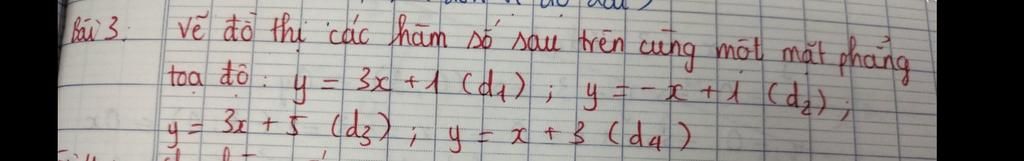 Bài 3. Vẽ đồ thị các hàm số sau trên cùng một mặt phẳng
toạ độ: y = 3x + 1 (d1); y = -x + 1 (d2);
y = 3x + 5 (d3); y = x + 3 (d4)